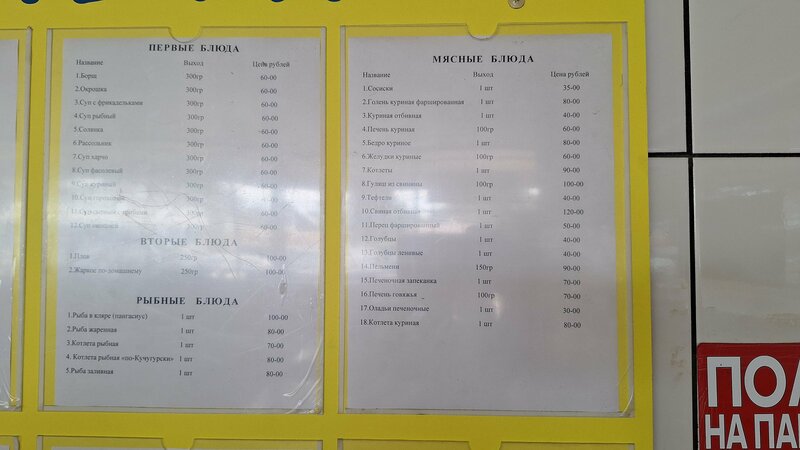 ПЕРВЫЕ БЛЮДА
Название Выход Цена рублей
1.Борщ 300гр 60-00
2.Окрошка 300гр 60-00
3.Суп с фрикадельками 300гр 60-00
4.Суп рыбный 300гр 60-00
5.Солянка 300гр 60-00
6.Рассольник 300гр 60-00
7.Суп харчо 300гр 60-00
8.Суп фасолевый 300гр 60-00
9.Суп куриный 300гр 60-00
10.Суп гороховый 300гр 60-00
11.Суп сырный с грибами 300гр 60-00
12.Суп овощной 300гр 60-00
ВТОРЫЕ БЛЮДА
1.Плов 250гр 100-00
2.Жаркое по-домашнему 250гр 100-00
РЫБНЫЕ БЛЮДА
1.Рыба в кляре (пангасиус) 1 шт 100-00
2.Рыба жаренная 1 шт 80-00
3.Котлета рыбная 1 шт 70-00
4. Котлета рыбная «по-Кучугурски» 1 шт 80-00
5.Рыба заливная 1 шт 80-00
МЯСНЫЕ БЛЮДА
Название Выход Цена рублей
1.Сосиски 1 шт 35-00
2.Голень куриная фаршированная 1 шт 80-00
3.Куриная отбивная 1 шт 40-00
4.Печень куриная 100гр 60-00
5.Бедро куриное 1 шт 80-00
6.Желудки куриные 100гр 60-00
7.Котлеты 1 шт 90-00
8.Гуляш из свинины 100гр 100-00
9.Тефтели 1 шт 40-00
10.Свиная отбивная 1 шт 120-00
11.Перец фаршированный 1 шт 50-00
12.Голубцы 1 шт 40-00
13.Голубцы ленивые 1 шт 40-00
14.Пельмени 150гр 90-00
15.Печеночная запеканка 1 шт 70-00
16.Печень говяжья 100гр 70-00
17.Оладьи печеночные 1 шт 30-00
18.Котлета куриная 1 шт 80-00
ПОЛ
НА ПА